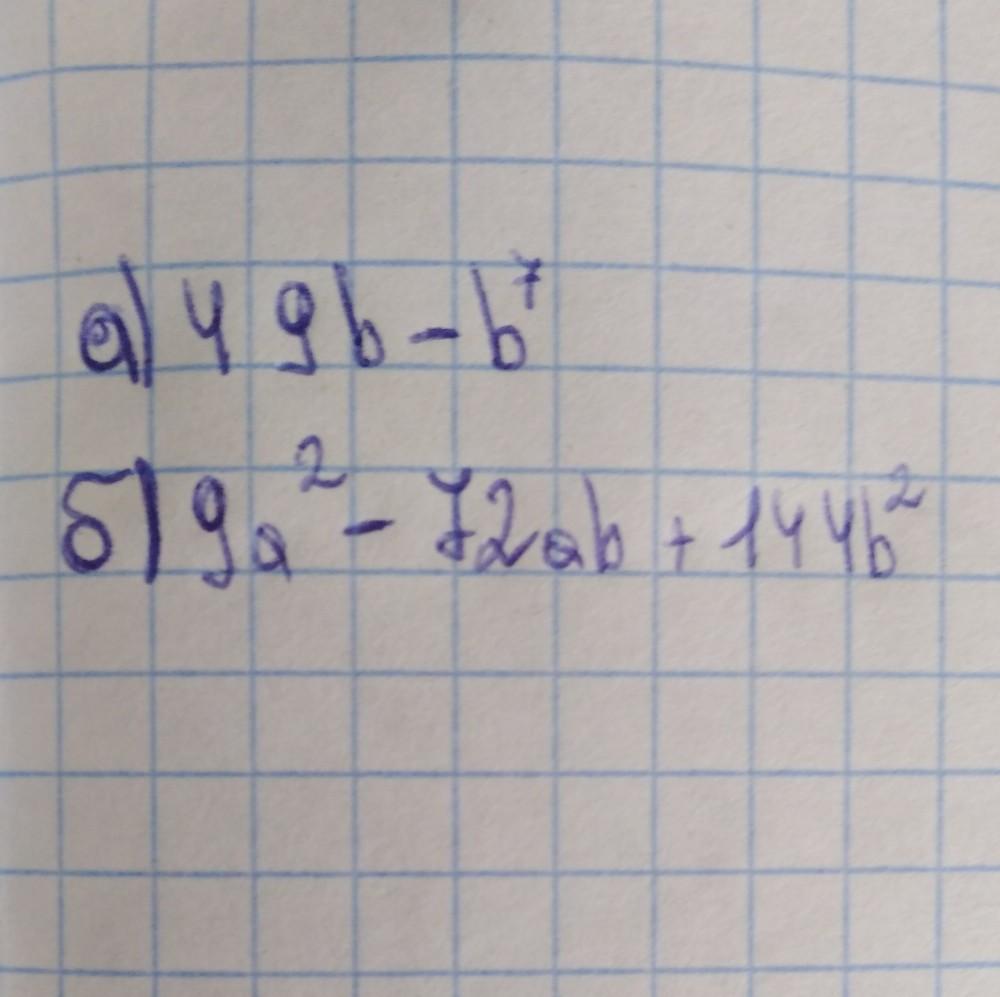 а) 49b - b⁷
б) 9a² - 72ab + 144b²